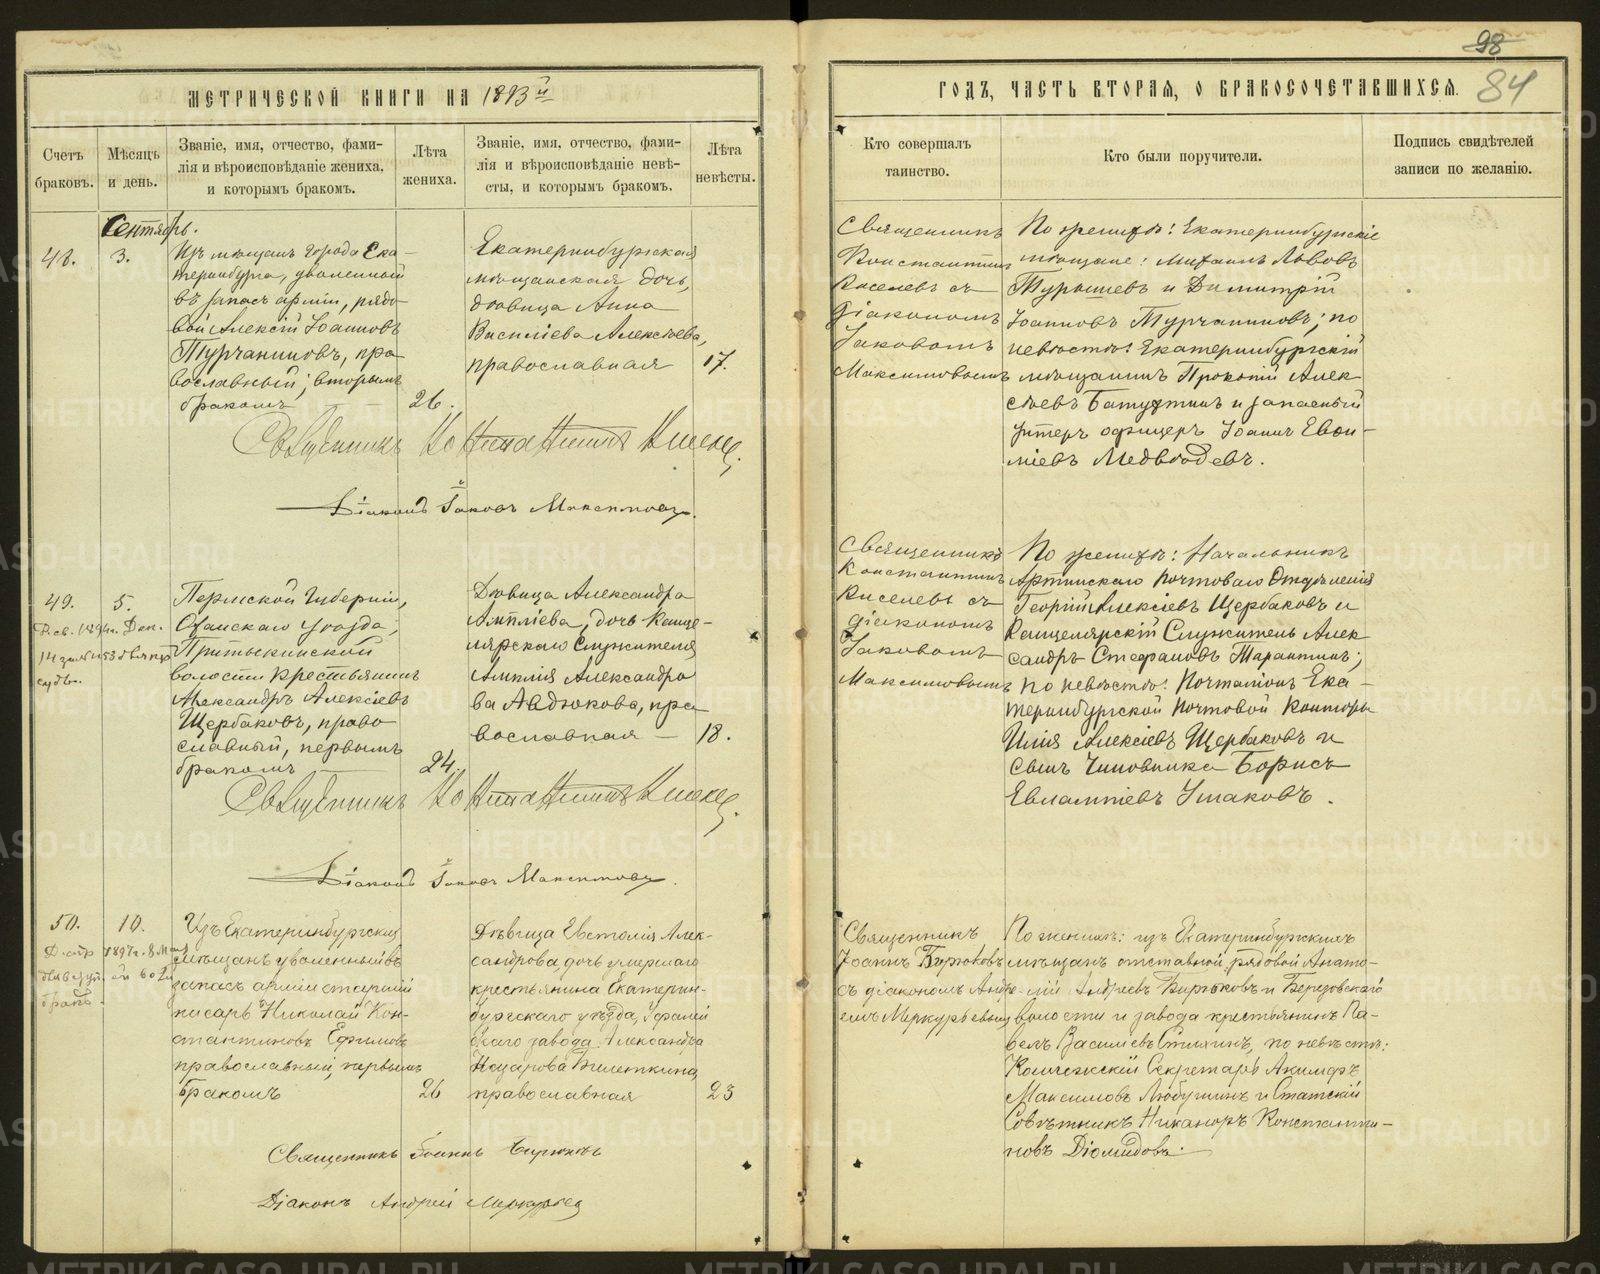 98
84
МЕТРИЧЕСКОЙ КНИГИ НА 1893й
ГОДЪ, ЧАСТЬ ВТОРАЯ, О БРАКОСОЧЕТАВШИХСЯ.
Счетъ
браковъ.
Мѣсяцъ
и день.
Званіе, имя, отчество, фами-
лія и вѣроисповѣданіе жениха,
и которымъ бракомъ.
Лѣта
жениха.
Званіе, имя, отчество, фами-
лія и вѣроисповѣданіе невѣ-
сты, и которымъ бракомъ.
Лѣта
невѣсты.
Кто совершалъ
таинство.
Кто были поручители.
Подпись свидѣтелей
записи по желанію.
Сентябрь.
48.
3.
Изъ мѣщанъ города Ека-
теринбурга, уволенный
въ запасъ арміи, рядо
вой Алексій Іоанновъ
Турчаниновъ, пра
вославный; вторымъ
бракомъ
26.
Екатеринбургская
мѣщанская дочь,
дѣвица Анна
Василіева Алексѣева,
православная
17.
Священникъ
Константинъ
Киселевъ съ
діакономъ
Іаковомъ
Максимовымъ
По женихѣ: Екатеринбургскіе
мѣщане: Михаилъ Львовъ
Турышевъ и Димитрій
Іоанновъ Турчаниновъ; по
невѣстѣ: Екатеринбургскій
мѣщанинъ Прокопій Алек
сѣевъ и запасный
унтеръ офицеръ Іоаннъ Евѳи-
міевъ Медвѣдевъ.
Священникъ Константинъ Киселев
Діаконъ Іаковъ Максимовъ.
49.
5.
Пермской Губерніи,
Осинскаго Уѣзда,
волости крестьянинъ
Александръ Алексіевъ
Щербаковъ, право
славный, первымъ
бракомъ
24.
Дѣвица Александра
Амплѣева, дочь Канце-
лярскаго Служителя
Амплія Александро
ва Авдюкова, пра
вославная
18.
Священникъ
Константинъ
Киселевъ съ
діакономъ
Іаковомъ
Максимовымъ
По женихѣ: Начальникъ
Артинскаго Почтоваго Отдѣленія
Георгій Алексіевъ Щербаковъ и
Канцелярскій Служитель Алек
сандръ Стефановъ Тарантинъ;
по невѣстѣ: Почталіонъ Ека-
теринбургской Почтовой Конторы
Илія Алексіевъ Щербаковъ и
сынъ Чиновника Борисъ
Евлампіевъ Ушаковъ.
Священникъ Константинъ Киселев
Діаконъ Іаковъ Максимовъ.
50.
10.
Изъ Екатеринбургскихъ
мѣщанъ уволенный въ
запасъ арміи старшій
писарь Николай Кон-
стантиновъ Ефимовъ
православный, первымъ
бракомъ
26
Дѣвица Евстолія Алек-
сандрова, дочь умершаго
крестьянина Екатерин-
бургскаго уѣзда,
скаго завода Александра
православная
23
Священникъ
Іоаннъ Бирюковъ
съ діакономъ Андре-
емъ Меркурьевымъ
По женихѣ: изъ Екатеринбургскихъ
мѣщанъ отставной рядовой Анато-
лій Андреевъ Бирюковъ и Березовскаго
волости и завода крестьянинъ Па-
велъ Василіевъ, по невѣстѣ:
Коллежскій Секретарь
Максимовъ Любушинъ и Статскій
Совѣтникъ Никаноръ Константи-
новъ Діомидовъ.
Священникъ Іоаннъ Бирюковъ
Діаконъ Андрей Меркурьев
METRIKI.GASO-URAL.RU